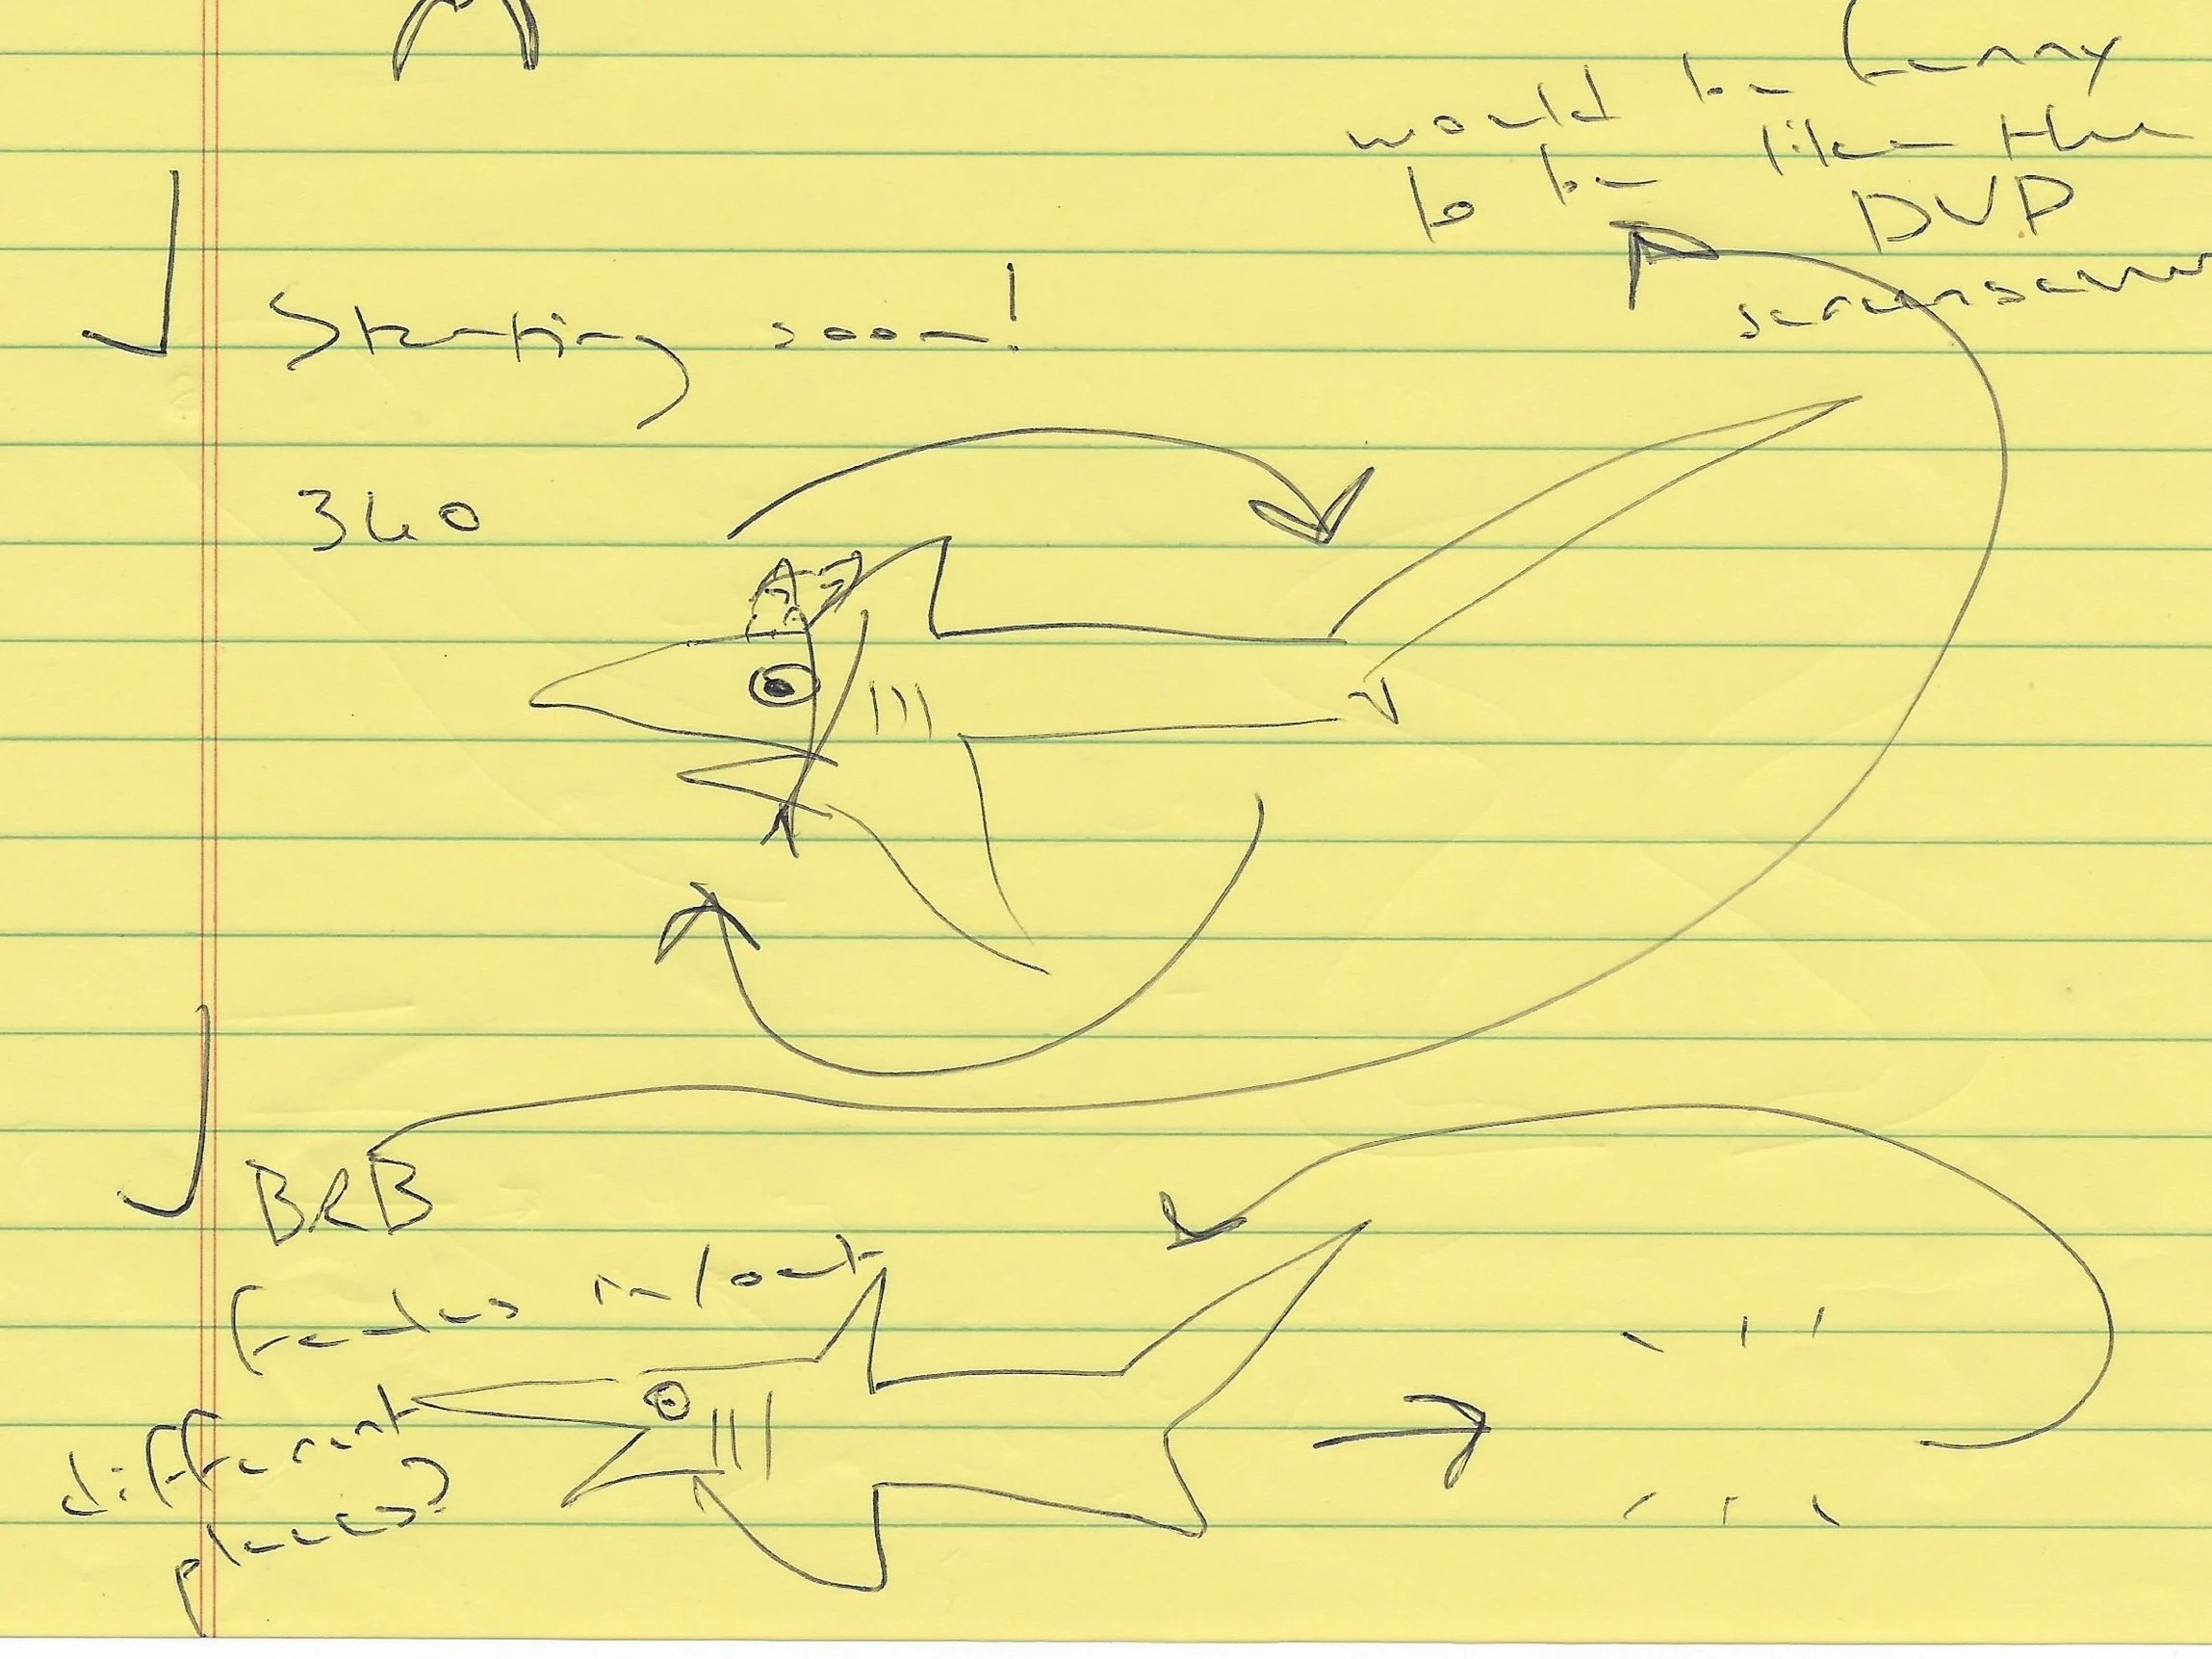 would be funny
to be like the
DVD
screensaver
Starting soon!
360
BRB
fades in/out
different
places?